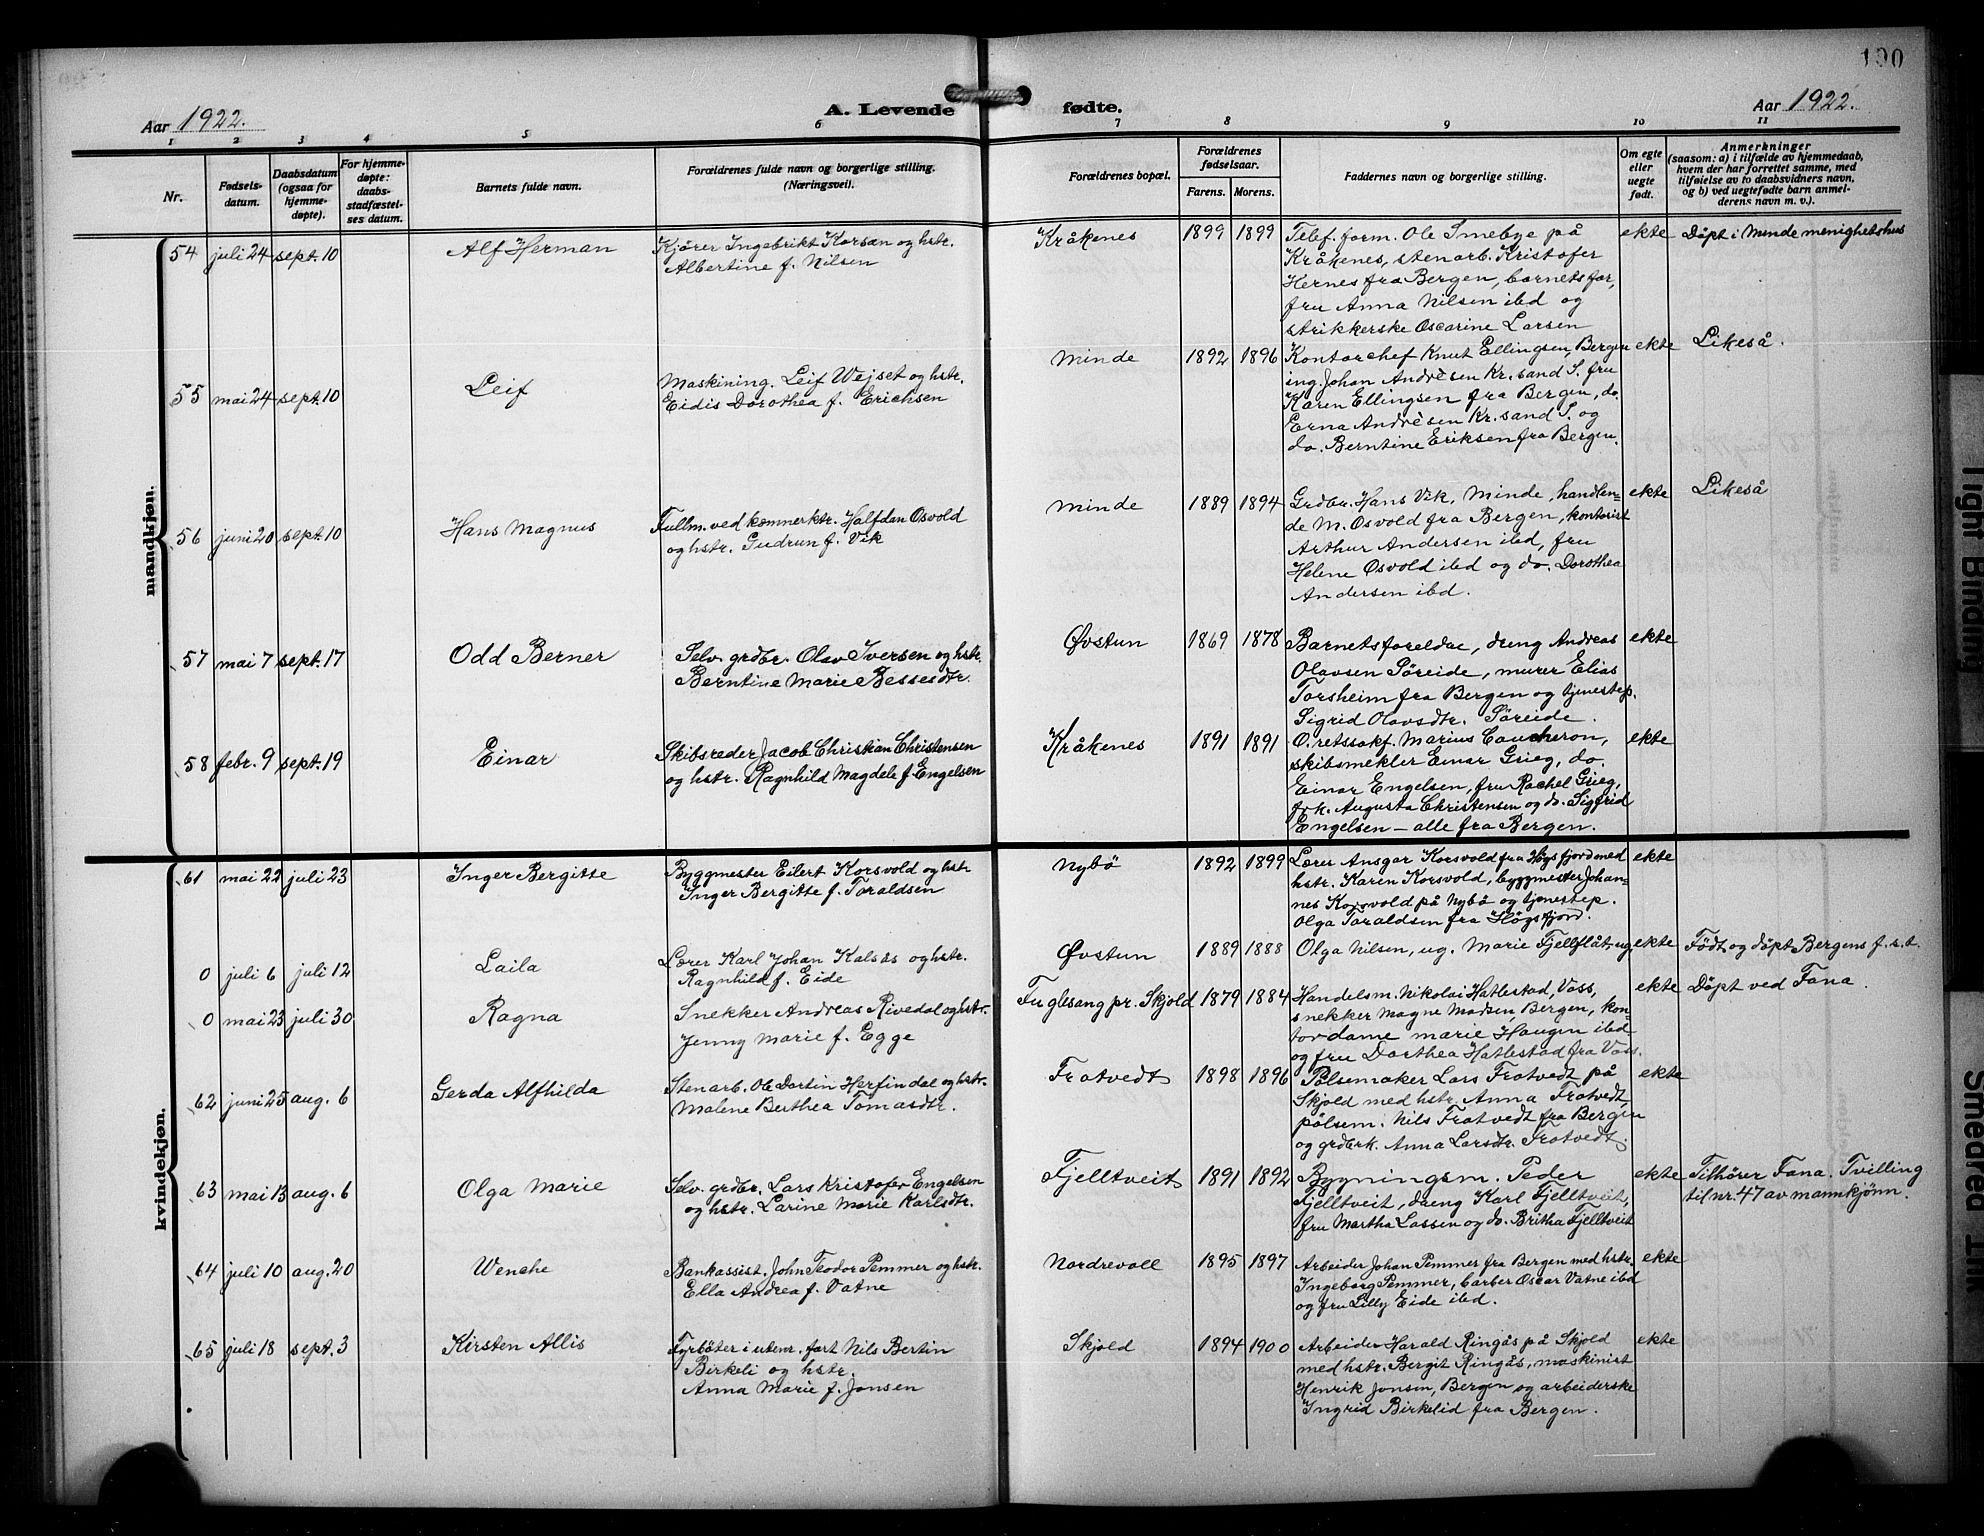 190
Aar 1922.
A. Levende fødte.
Aar 1922.
1 2 3 4 5 6 7 8 9 10 11
Nr.
Fødsels-
datum.
Daabsdatum
(ogsaa for
hjemme-
døpte).
For hjemme-
døpte:
daabs-
stadfæstel-
ses datum.
Barnets fulde navn.
Forældrenes fulde navn og borgerlige stilling.
(Næringsvei).
Forældrenes bopæl.
Forældrenes
fødselsaar.
Farens. Morens.
Faddernes navn og borgerlige stilling.
Om egte
eller
uegte
født.
Anmerkninger
(saasom: a) i tilfælde av hjemmedaab,
hvem der har forrettet samme, med
tilføielse av to daabsvidners navn,
og b) ved uegtefødte barn anmel-
derens navn m. v.).
mandkjøn.
54 juli 24 sept. 10 Alf Herman
Kjører Ingebrikt Korsæn og hstr.
Albertine f. Nilsen
Kråkenes 1899 1899
Telef. form. Ole Smebye på
Kråkenes, stenarb. Kristofer
Hernes fra Bergen, barnets far,
fru Anna Nilsen ibd og
strikkerske Oscarine Larsen
ekte Döpt i Minde menighetshus
55 mai 24 sept. 10 Leif
Maskining. Leif Wejset og hstr.
Eidis Dorothea f. Erichsen
Minde 1892 1896
Kontorchef Knut Ellingsen, Bergen
ing. Johan Andrèsen Kr. sand S. fru
Karen Ellingsen fra Bergen, do.
Erna Andrèsen Kr. sand S. og
do. Berntine Eriksen fra Bergen.
ekte Likeså.
56 juni 20 sept. 10 Hans Magnus
Fullm. ved kæmnerktr. Halfdan Osvold
og hstr. Gudrun f. Vik
Minde 1889 1894
Grdbr. Hans Vik, Minde, handlen-
de M. Osvold fra Bergen, kontorist
Arthur Andersen ibd, fru
Helene Osvold ibd og do. Dorothea
Andersen ibd.
ekte Likeså
57 mai 7 sept. 17 Odd Berner
Selv. grdbr. Olav Iversen og hstr.
Berntine Marie Bessesdtr.
Øvstun 1869 1878
Barnets foreldæ, dreng Andreas
Olavsen Söreide, murer Elias
Torsheim fra Bergen og tjenestep.
Sigrid Olavsdtr. Söreide.
ekte
58 febr. 9 sept. 19 Einar
Skibsreder Jacob Christian Christensen
og hstr. Ragnhild Magdele f. Engelsen
Kråkenes 1891 1891
O. retssakf. Marius Coucheron,
skibsmekler Einar Grieg, do.
Einar Engelsen, fru Rachel Grieg,
frk. Augusta Christensen og do. Sigfrid
Engelsen – alle fra Bergen.
ekte
kvindekjøn.
61 mai 22 juli 23 Inger Bergitte
Byggmester Eilert Korsvold og hstr.
Inger Bergitte f. Toraldsen
Nybö 1892 1899
Lærer Ansgar Korsvold fra Högsfjord med
hstr. Karen Korsvold, byggmester Johan-
nes Korsvold på Nybö og tjenestep.
Olga Toraldsen fra Högsfjord.
ekte
0 juli 6 juli 12 Laila
Lærer Karl Johan Kalsås og hstr.
Ragnhild f. Eide
Øvstun 1889 1888
Olga Nilsen, ug. Marie Fjellflåt ug
ekte Född og döpt Bergens f. s. t.
0 mai 23 juli 30 Ragna
Snekker Andreas Rivedal og hstr.
Jenny Marie f. Egge
Fuglesang pr. Skjold 1879 1884
Handelsm. Nikolai Hatlestad, Voss,
snekker Magne Madsen, Bergen, kon-
tordame Marie Haugen ibd
og fru Dorthea Hatlestad fra Voss.
ekte Döpt ved Fana.
62 juni 25 aug. 6 Gerda Alfhilda
Stenarb. Ole Dortin Herfindal og hstr.
Malene Berthea Tomasdtr.
Frotvedt 1898 1896
Pölsemaker Lars Frotvedt på
Skjold med hstr. Anna Frotvedt
pölsem. Nils Frotvedt fra Bergen
og grdbrk. Anna Larsdtr. Frotvedt.
ekte
63 mai 13 aug. 6 Olga Marie
Selv. grdbr. Lars Kristofer Engelsen
og hstr. Larine Marie Karlsdtr.
Fjelltveit 1891 1892
Bygningsm. Peder
Fjelltveit, dreng Karl Fjelltveit,
fru Martha Lassen og do. Britha Fjelltveit
ekte Tilhörer Fana. Tvilling
til nr. 47 av mannkjönn.
64 juli 10 aug. 20 Wenche
Bankassist. John Teodor Pemmer og hstr.
Ella Andrea f. Vatne
Nordrevoll 1895 1897
Arbeider Johan Pemmer fra Bergen med hstr.
Ingeborg Pemmer, barber Oscar Vatne ibd
og fru Lilly Eide ibd.
ekte
65 juli 18 sept. 3 Kirsten Allis
Fyrböter i utenr. fart Nils Bertin
Birkeli og hstr.
Anna Marie f. Jonsen
Skjold 1894 1900
Arbeider Harald Ringås på Skjold
med hstr. Bergit Ringås, maskinist
Henrik Jonsen, Bergen og arbeiderske
Ingrid Birkelid fra Bergen.
ekte
Tight Binding
Smeared Ink